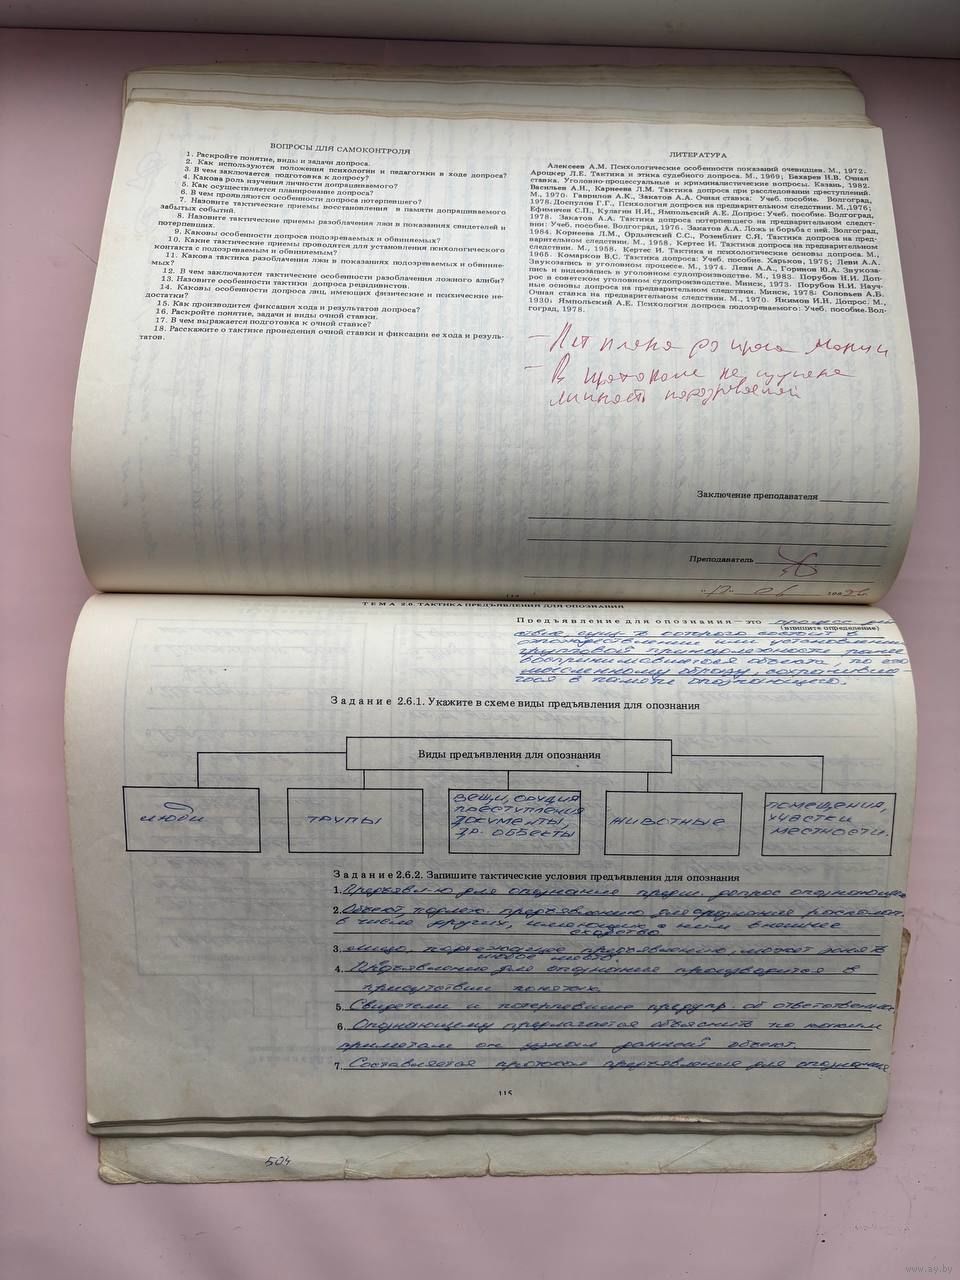 ВОПРОСЫ ДЛЯ САМОКОНТРОЛЯ
1. Раскройте понятие, виды и задачи допроса.
2. Как используются положения психологии и педагогики в ходе допроса?
3. В чем заключается подготовка к допросу?
4. Какова роль изучения личности допрашиваемого?
5. Как осуществляется планирование допроса?
6. В чем проявляются особенности допроса потерпевшего?
7. Назовите тактические приемы восстановления в памяти допрашиваемого
забытых событий.
8. Назовите тактические приемы разоблачения лжи в показаниях свидетелей и
потерпевших.
9. Каковы особенности допроса подозреваемых и обвиняемых?
10. Какие тактические приемы проводятся для установления психологического
контакта с подозреваемым и обвиняемым?
11. Какова тактика разоблачения лжи в показаниях подозреваемых и обвиняе-
мых?
12. В чем заключаются тактические особенности разоблачения ложного алиби?
13. Назовите особенности тактики допроса рецидивистов.
14. Каковы особенности допроса лиц, имеющих физические и психические не-
достатки?
15. Как производится фиксация хода и результатов допроса?
16. Раскройте понятие, задачи и виды очной ставки.
17. В чем выражается подготовка к очной ставке?
18. Расскажите о тактике проведения очной ставки и фиксации ее хода и резуль-
татов.
ЛИТЕРАТУРА
Алексеев А.М. Психологические особенности показаний очевидцев. М., 1972;
Ароцкер Л.Е. Тактика и этика судебного допроса. М., 1969; Бахарев Н.В. Очная
ставка. Уголовно-процессуальные и криминалистические вопросы. Казань, 1982.
Васильев А.Н., Карнеева Л.М. Тактика допроса при расследовании преступлений.
М., 1970. Гаврилов А.К., Закатов А.А. Очная ставка: Учеб. пособие. Волгоград,
1978. Доспулов Г.Г., Психология допроса на предварительном следствии. М., 1976;
Ефимичев С.П., Кулагин Н.И., Ямпольский А.Е. Допрос: Учеб. пособие. Волгоград,
1978. Закатов А.А. Тактика допроса потерпевшего на предварительном следст-
вии: Учеб. пособие. Волгоград, 1976. Закатов А.А. Ложь и борьба с ней. Волгоград,
1984. Корнеева Л.М., Ордынский С.С., Розенблит С.Я. Тактика допроса на пред-
варительном следствии. М., 1958. Кертес И. Тактика допроса на предварительном
следствии. М., 1958. Кертес И. Тактика и психологические основы допроса. М.,
1965. Комарков В.С. Тактика допроса: Учеб. пособие. Харьков, 1975; Леви А.А.
Звукозапись в уголовном процессе. М., 1974. Леви А.А., Горинов Ю.А. Звукоза-
пись и видеозапись в уголовном судопроизводстве. М., 1983. Порубов Н.И. Доп-
рос в советском уголовном судопроизводстве. Минск, 1973. Порубов Н.И. Науч-
ные основы допроса на предварительном следствии. Минск, 1978; Соловьев А.Б.
Очная ставка на предварительном следствии. М., 1970. Якимов И.Н. Допрос: М.,
1930; Ямпольский А.Е. Психология допроса подозреваемого: Учеб. пособие. Вол-
гоград, 1978.
- Нет плана
- В протоколе не изучена
личность подозреваемой
Заключение преподавателя
Преподаватель
ТЕМА 2.6. ТАКТИКА ПРЕДЪЯВЛЕНИЯ ДЛЯ ОПОЗНАНИЯ
Предъявление для опознания – это процесс
(впишите определение)
которого состоит в
отождествлении или установлении
групповой принадлежности ранее
воспринимавшегося объекта, по его
мысленному образу, сохранивше-
гося в памяти опознающего.
Задание 2.6.1. Укажите в схеме виды предъявления для опознания
Виды предъявления для опознания
люди
ТРУПЫ
ВЕЩИ, ОРУДИЯ
ПРЕСТУПЛЕНИЯ
ДОКУМЕНТЫ,
ДР. ОБЪЕКТЫ
ЖИВОТНЫЕ
ПОМЕЩЕНИЯ,
УЧАСТКИ
МЕСТНОСТИ.
Задание 2.6.2. Запишите тактические условия предъявления для опознания
1. Предъявл-ю для опознания предш. допрос опознающего
2. Объект, подлеж. предъявлению для опознания располаг.
в числе других, имеющих с ним внешнее
сходство
3. Лицо, подлежащее предъявлению, может занять
любое место.
4. Предъявление для опознания производится в
присутствии понятых.
5. Свидетели и потерпевшие предупр. об ответственн.
6. Опознающему предлагается объяснить по каким
приметам он узнал данный объект.
7. Составляется протокол предъявления для опознания
115
504
www.ay.by